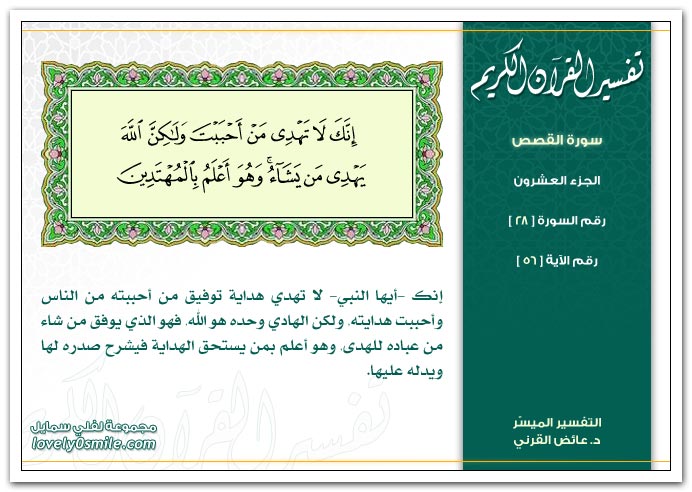 تفسير القرآن الكريم
سورة القصص
الجزء العشرون
رقم السورة [ ٢٨ ]
رقم الآية [ ٥٦ ]
إِنَّكَ لَا تَهْدِى مَنْ أَحْبَبْتَ وَلَٰكِنَّ ٱللَّهَ
يَهْدِى مَن يَشَآءُ ۚ وَهُوَ أَعْلَمُ بِٱلْمُهْتَدِينَ
إنك -أيها النبي- لا تهدي هداية توفيق من أحببته من الناس
وأحببت هدايته، ولكن الهادي وحده هو الله، فهو الذي يوفق من شاء
من عباده للهدى، وهو أعلم بمن يستحق الهداية فيشرح صدره لها
ويدله عليها.
التفسير الميسّر
د. عائض القرني
مجموعة لفلي سمايل
lovely0smile.com
تفسير القرآن الكريم